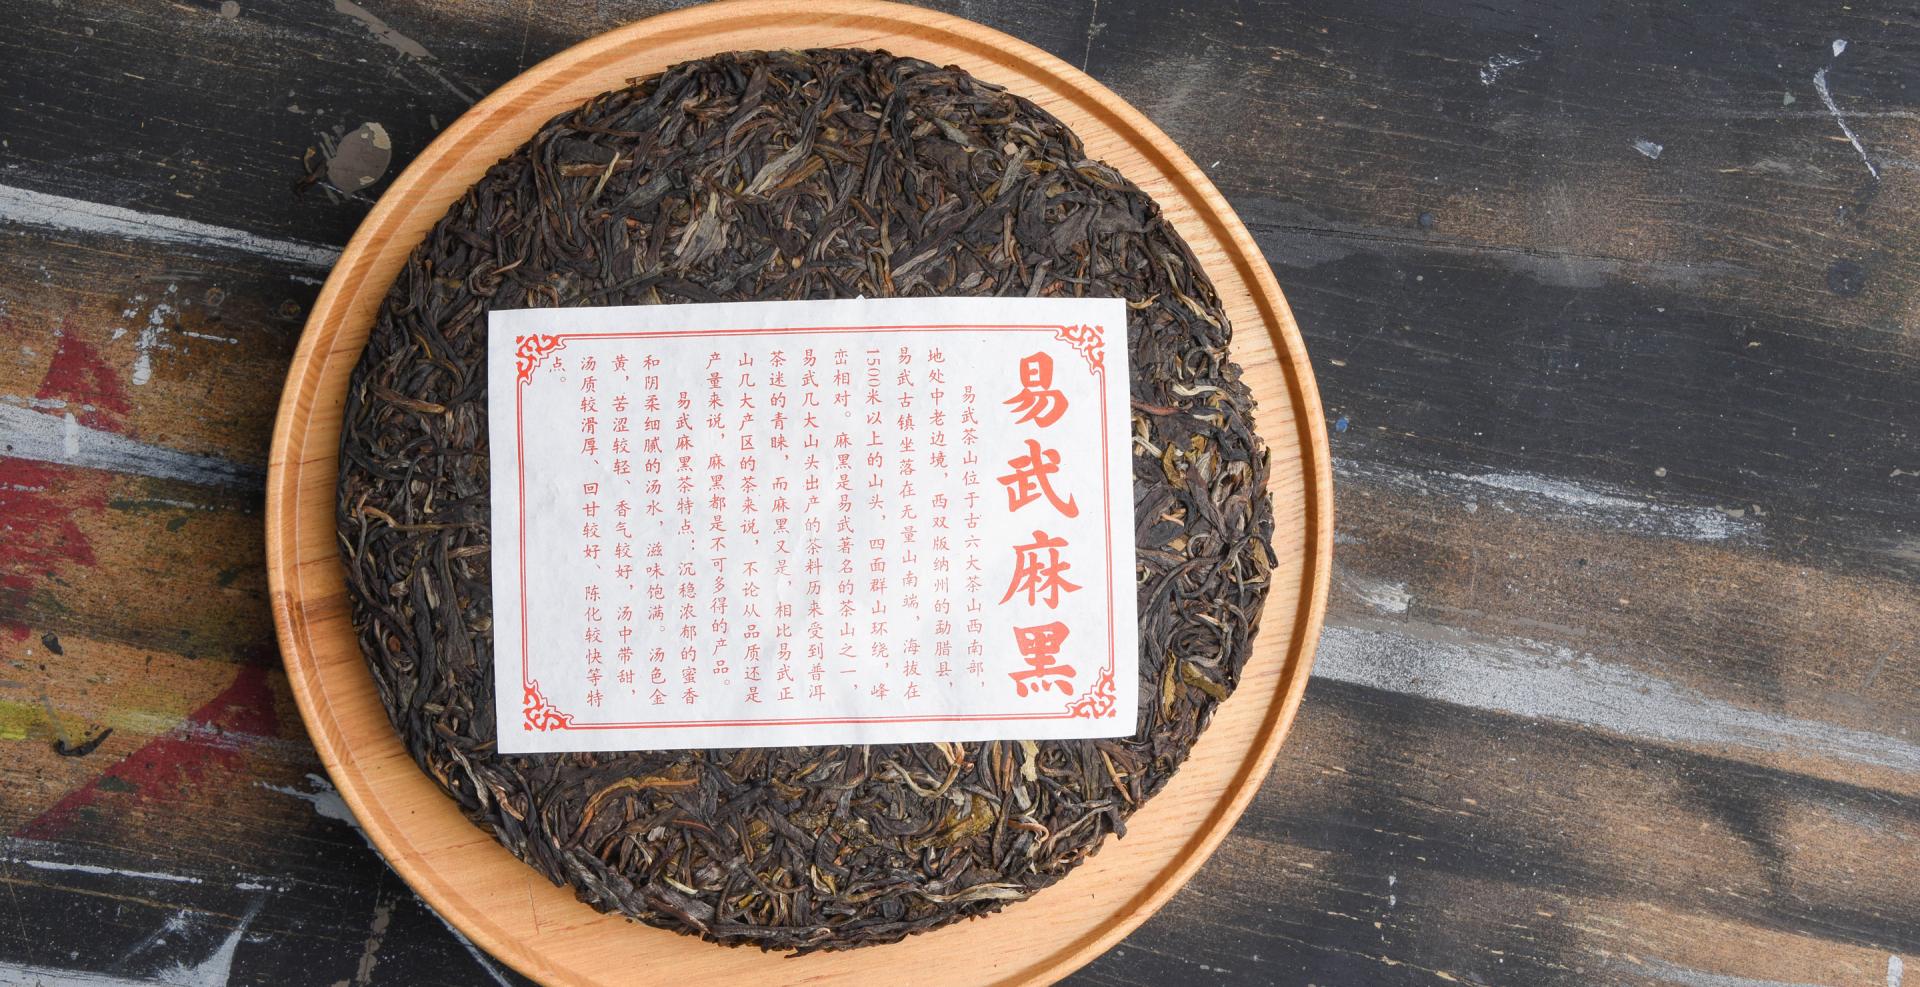 易武麻黑
易武茶山位于古六大茶山西南部，
地处中老边境，西双版纳州的勐腊县，
易武古镇坐落在无量山南端，海拔在
1500米以上的山头，四面群山环绕，峰
峦相对。麻黑是易武著名的茶山之一，
易武几大山头出产的茶料历来受到普洱
茶迷的青睐，而麻黑又是，相比易武正
山几大产区的茶来说，不论从品质还是
产量来说，麻黑都是不可多得的产品。
易武麻黑茶特点：沉稳浓郁的蜜香
和阴柔细腻的汤水，滋味饱满。汤色金
黄，苦涩较轻、香气较好，汤中带甜，
汤质较滑厚、回甘较好、陈化较快等特
点。